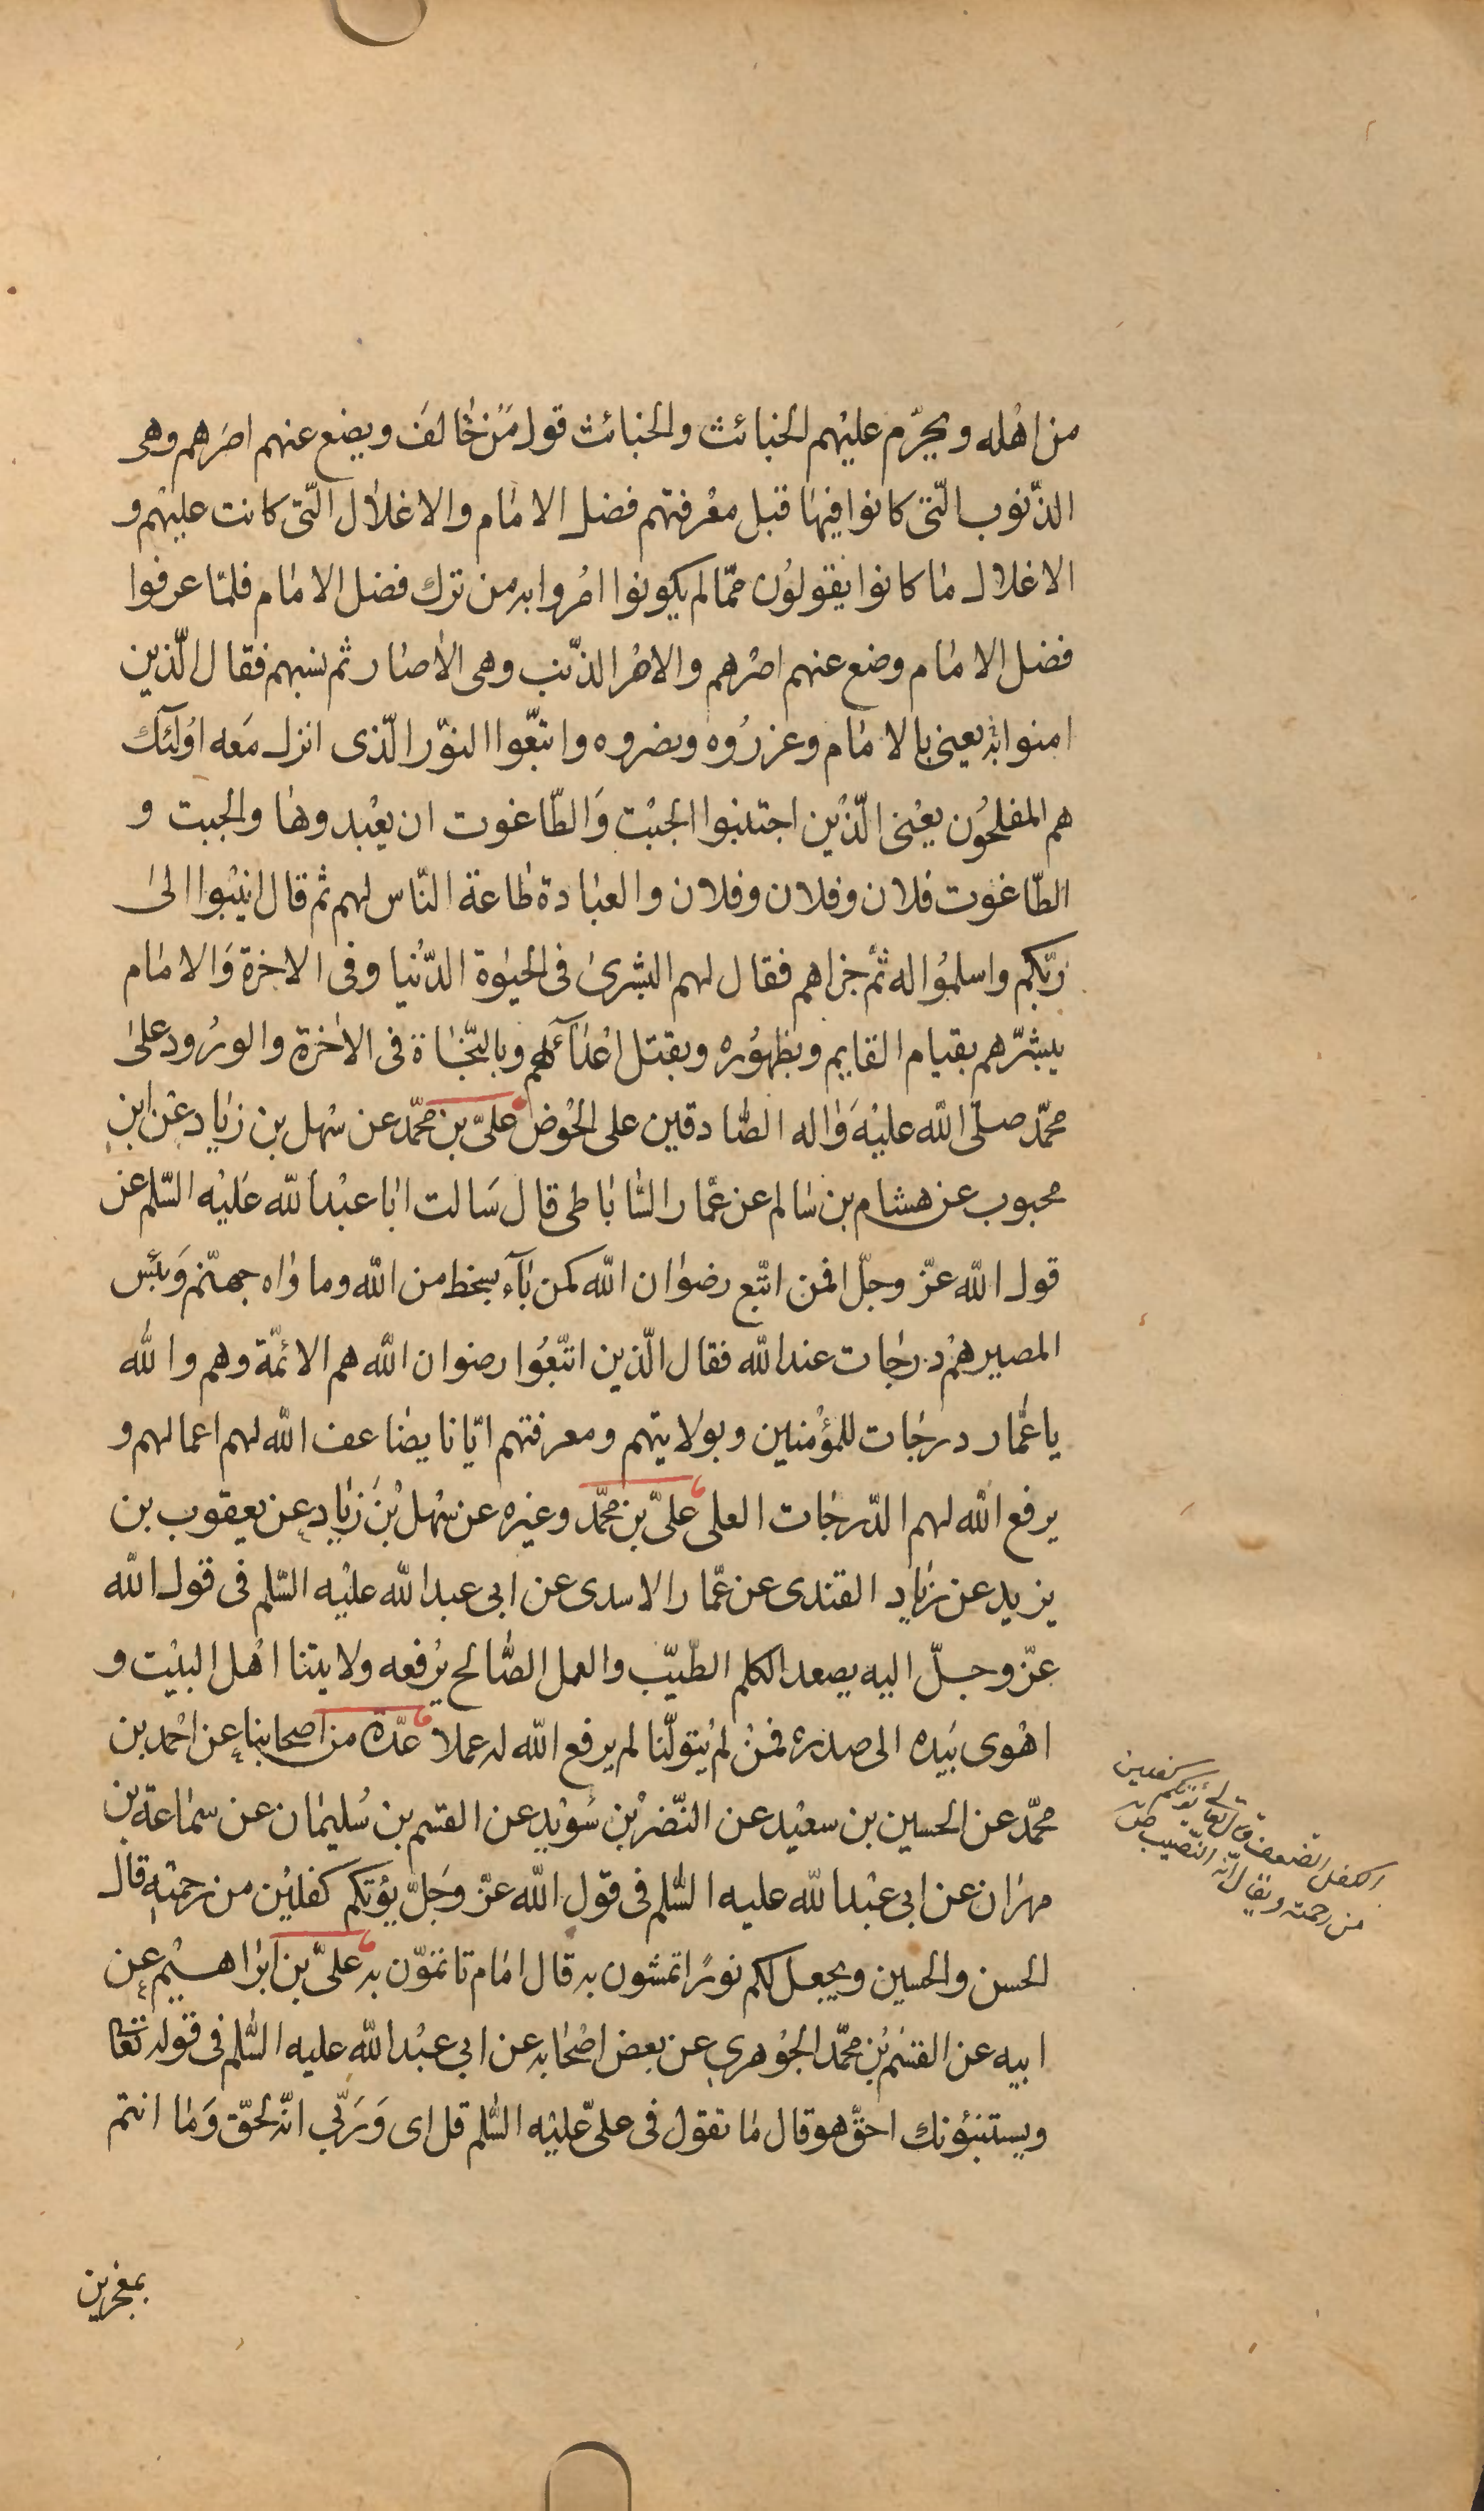 من اهله ويحرّم عليهم الخبائث والخبائث قول من خالف ويضع عنهم اصرهم وهى
الذّنوب الّتى كانوا فيها قبل معرفتهم فضل الامام والاغلال الّتى كانت عليهم و
الاغلال ما كانوا يقولون ممّا لم يكونوا امروا به من ترك فضل الامام فلمّا عرفوا
فضل الامام وضع عنهم اصرهم والاصر الذّنب وهى الاصار ثم نسبهم فقال الّذين
امنوا به يعنى بالامام وعزروه ونصروه واتّبعوا النوّر الّذى انزل معه اولئك
هم المفلحون يعنى الّذين اجتنبوا الجبت والطّاغوت ان يعبدوها والجبت و
الطّاغوت فلان وفلان وفلان والعبادة طاعة النّاس لهم ثم قال انيبوا الى
ربّكم واسلموا له ثمّ جزاهم فقال لهم البشرى فى الحيوة الدّنيا وفى الاخرة والامام
يبشّرهم بقيام القايم وبظهوره وبقتل اعدآئهم وبالنّجاة فى الاخرة والورود على
محمّد صلّى الله عليه واله الصّادقين على الحوض علىّ بن محمّد عن سهل بن زياد عن ابن
محبوب عن هشام بن سالم عن عمّار السّاباطى قال سالت ابا عبدالله عليه السّلم عن
قول الله عزّ وجلّ افمن اتّبع رضوان الله كمن بآء بسخط من الله وماواه جهنّم وبئس
المصير هم درجات عند الله فقال الّذين اتّبعوا رضوان الله هم الائمّة وهم والله
يا عمّار درجات للمؤمنين وبولايتهم ومعرفتهم ايّانا يضاعف الله لهم اعمالهم و
يرفع الله لهم الدّرجات العلى علىّ بن محمّد وغيره عن سهل بن زياد عن يعقوب بن
يزيد عن زياد القندى عن عمّار الاسدى عن ابى عبدالله عليه السّلم فى قول الله
عزّ وجلّ اليه يصعد الكلم الطّيّب والعمل الصّالح يرفعه ولايتنا اهل البيت و
اهوى بيده الى صدره فمن لم يتولّنا لم يرفع الله له عملا عدّة من اصحابنا عن احمد بن
محمّد عن الحسين بن سعيد عن النّضر بن سويد عن القسم بن سليمان عن سماعة بن
مهران عن ابى عبدالله عليه السّلم فى قول الله عزّ وجلّ يؤتكم كفلين من رحمته قال
الحسن والحسين ويجعل لكم نورا تمشون به قال امام تاتمّون به علىّ بن ابراهيم عن
ابيه عن القسم بن محمّد الجوهرى عن بعض اصحابه عن ابى عبدالله عليه السّلم فى قوله تعالى
ويستنبؤنك احقّ هو قال ما تقول فى علىّ عليه السّلم قل اى وربّى انّه لحقّ وما انتم
بمعجزين
الكفل الضعف قال تعالى يؤتكم كفلين
من رحمته ويقال انّه النّصيب